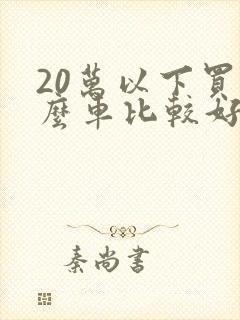 20萬以下買
麼車比較好
秦尚書